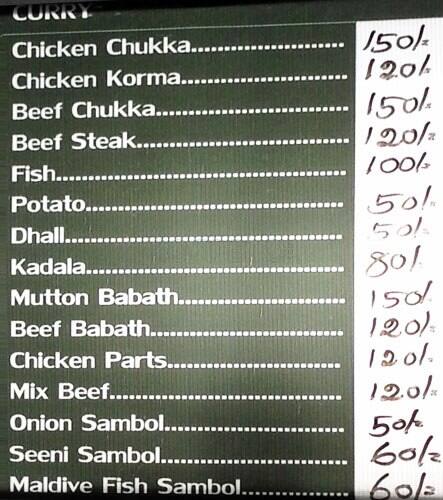 CURRY
Chicken Chukka.................................. 150/=
Chicken Korma.................................... 120/=
Beef Chukka........................................ 150/=
Beef Steak........................................... 120/=
Fish...................................................... 100/=
Potato.................................................. 50/=
Dhall..................................................... 50/=
Kadala.................................................. 80/=
Mutton Babath.................................... 150/=
Beef Babath......................................... 120/=
Chicken Parts...................................... 120/=
Mix Beef............................................... 120/=
Onion Sambol...................................... 50/=
Seeni Sambol....................................... 60/=
Maldive Fish Sambol.......................... 60/=